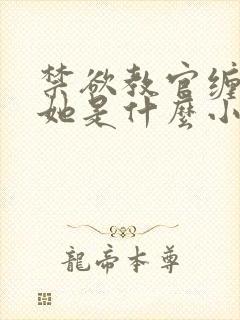 禁欲教官缠
她是什麽小
龍帝本尊